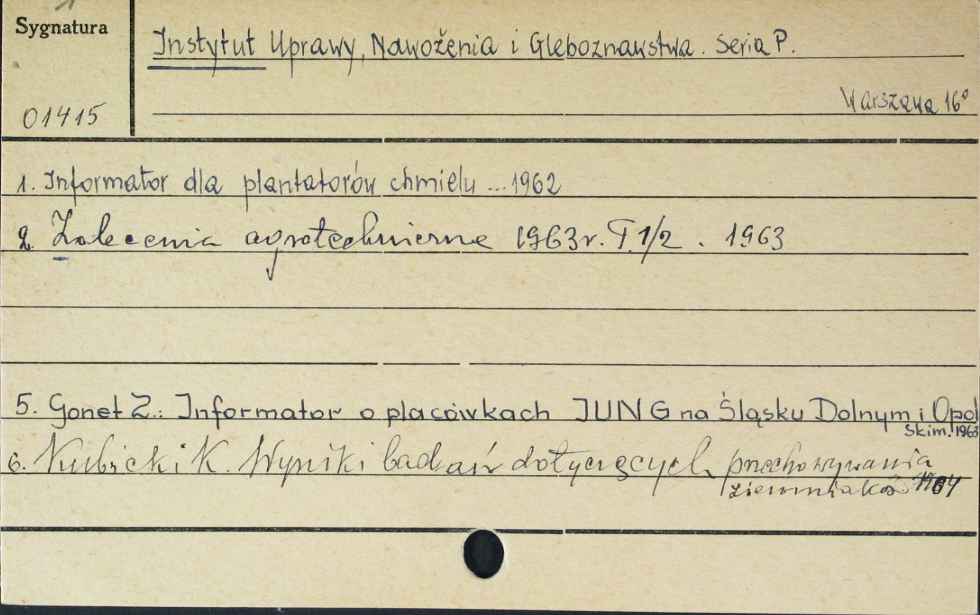 Sygnatura
Instytut Uprawy, Nawożenia i Gleboznawstwa. Seria P.
Warszawa 16°
01415
1. Informator dla plantatorów chmielu ... 1962
2. Zalecenia agrotechniczne 1963r. T. 1/2 . 1963
5. Gonet Z.: Informator o placówkach IUNG na Śląsku Dolnym i Opol
skim. 1963
6. Kubicki K. Wyniki badań dotyczących przechowywania
ziemniaków 1964